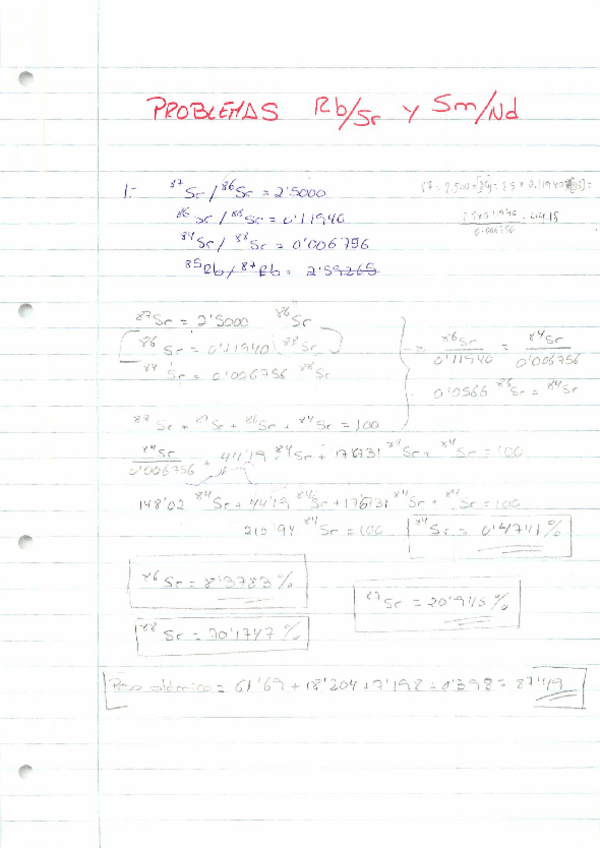 PROBLEMAS Rb/Sr y Sm/Nd
1.- ⁸⁷Sr / ⁸⁶Sr = 2'5000
⁸⁶Sr / ⁸⁸Sr = 0'11940
⁸⁴Sr / ⁸⁸Sr = 0'006756
⁸⁵Rb / ⁸⁷Rb = 2'59265
⁸⁷Sr = 2'5000 ⁸⁶Sr
⁸⁶Sr = 0'11940 (⁸⁸Sr)
⁸⁴Sr = 0'006756 ⁸⁸Sr
⁸⁶Sr / 0'11940 = ⁸⁴Sr / 0'006756
0'0566 ⁸⁶Sr = ⁸⁴Sr
⁸⁸Sr + ⁸⁷Sr + ⁸⁶Sr + ⁸⁴Sr = 100
⁸⁴Sr / 0'006756 + 44'19 ⁸⁴Sr + 17'6731 ⁸⁴Sr + ⁸⁴Sr = 100
148'02 ⁸⁴Sr + 44'19 ⁸⁴Sr + 17'6731 ⁸⁴Sr + ⁸⁴Sr = 100
210'94 ⁸⁴Sr = 100 ⁸⁴Sr = 0'4741 %
⁸⁶Sr = 8'3783 %
⁸⁷Sr = 20'945 %
⁸⁸Sr = 70'1747 %
Peso atómico = 61'69 + 18'204 + 7'198 + 0'398 = 87'49